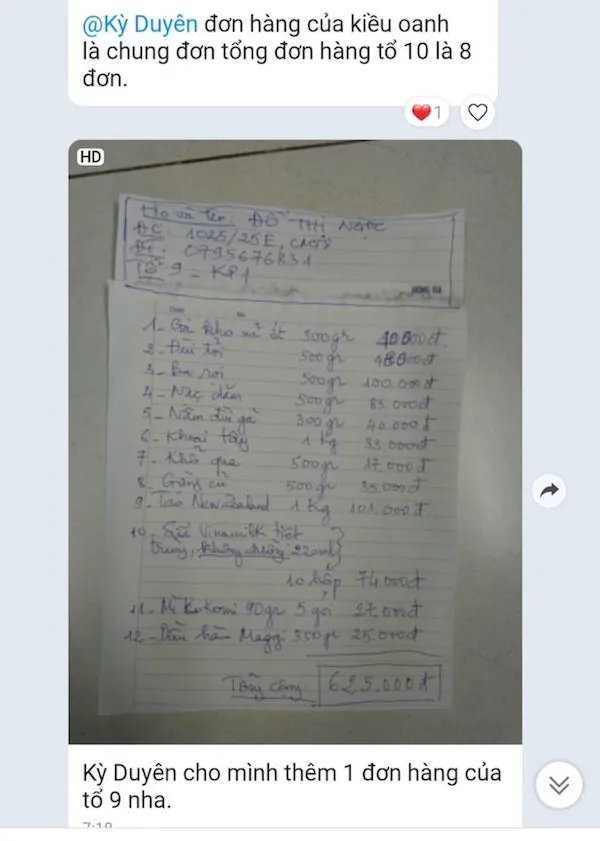 @Kỳ Duyên đơn hàng của kiều oanh
là chung đơn tổng đơn hàng tổ 10 là 8
đơn.
1
HD
Họ và tên: ĐỖ THỊ NGỌC
ĐC: 1025/25E,
ĐT: 0795676831
Tổ 9 - KP1
1- Gà kho xả ớt 300gr
2- Đùi tỏi 500gr
3- Ba rọi 500gr 100.000đ
4- Nạc dăm 500gr 85.000đ
5- Nấm đùi gà 300gr 40.000đ
6- Khoai tây 1 kg 33.000đ
7- Khổ qua 500gr 17.000đ
8- củ 500gr 35.000đ
9- Táo NewZealand 1 Kg 101.000đ
10- Sữa Vinamilk tiệt
trùng, 220ml
10 hộp 74.000đ
11- Mì Kokomi 90gr 5 gói 27.000đ
12- Dầu hào Maggi 350gr 25.000đ
Tổng cộng: 625.000đ
Kỳ Duyên cho mình thêm 1 đơn hàng của
tổ 9 nha.
7:18